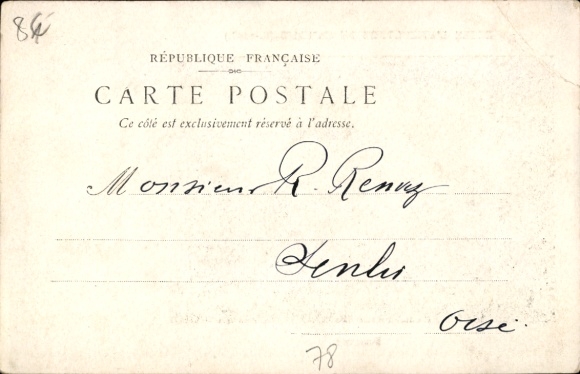 84
RÉPUBLIQUE FRANÇAISE
CARTE POSTALE
Ce côté est exclusivement réservé à l'adresse.
Monsieur R. Renaz
Senlis
Oise
78